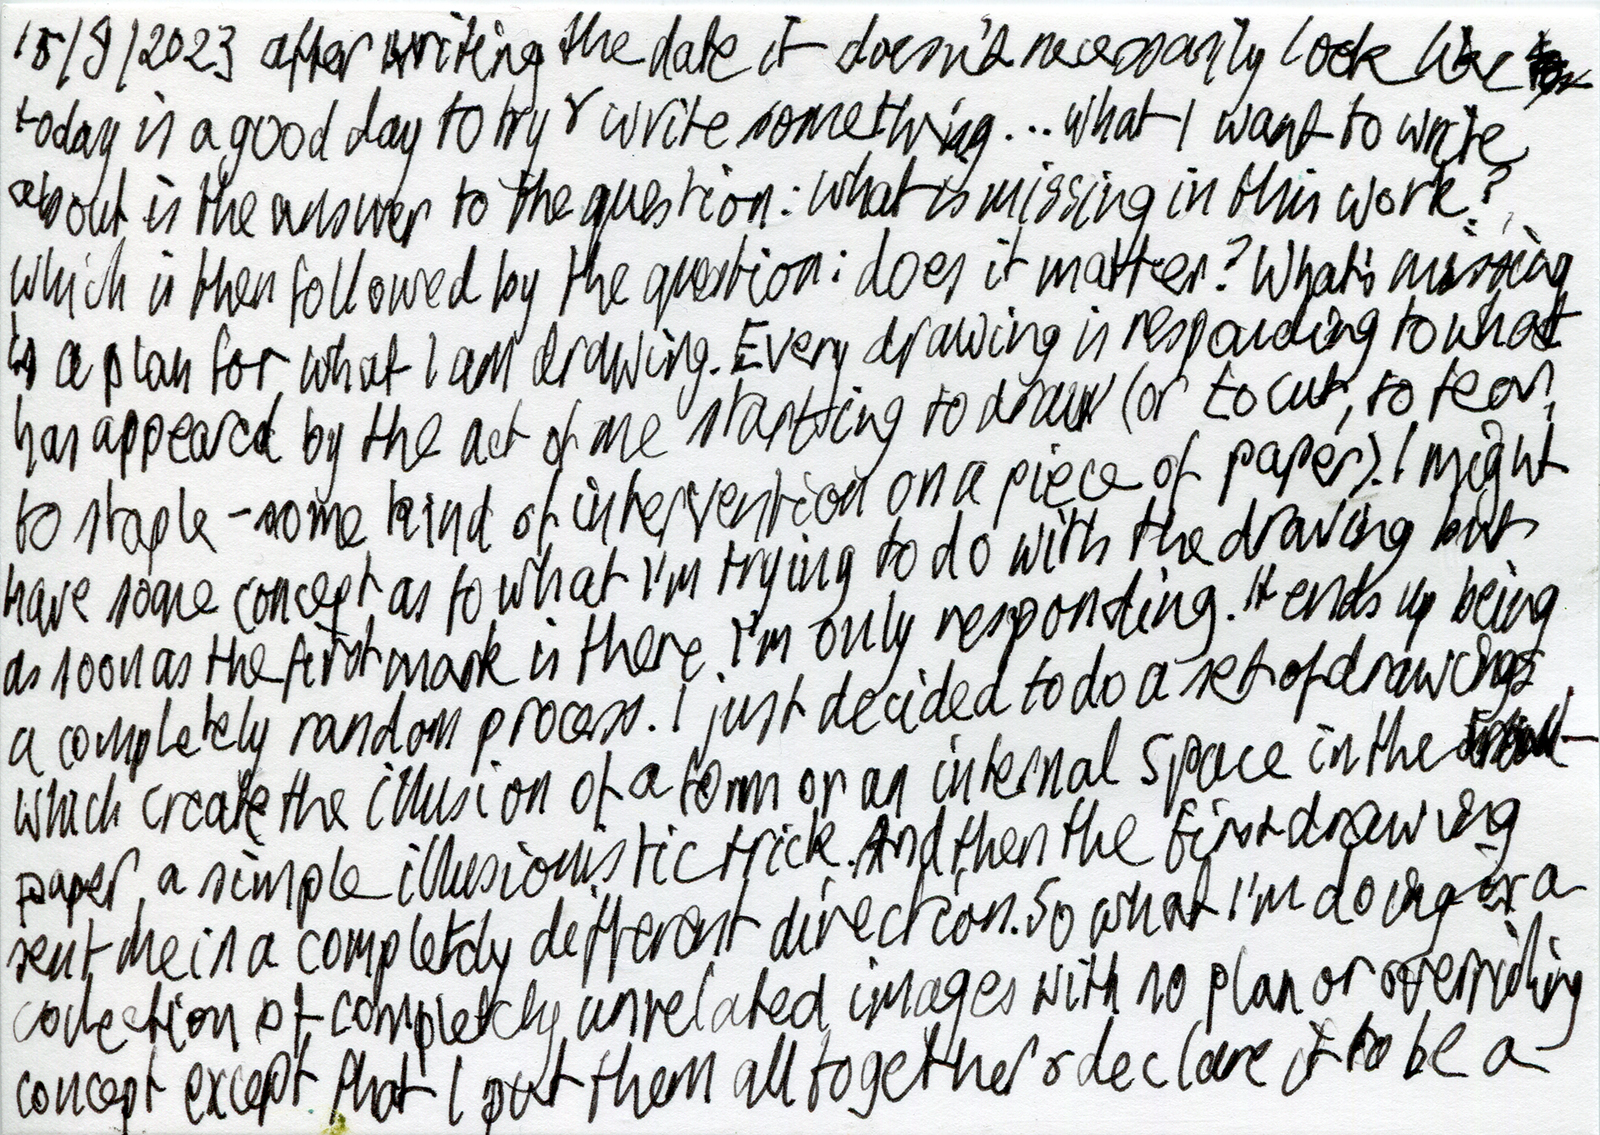 15/9/2023 after writing the date it doesn't necessarily look like
today is a good day to try & write something... what I want to write
about is the answer to the question: what is missing in this work?,
which is then followed by the question: does it matter? What's missing
is a plan for what I am drawing. Every drawing is responding to what
has appeared by the act of me starting to draw (or to cut, to tear,
to staple - some kind of intervention on a piece of paper). I might
have some concept as to what I'm trying to do with the drawing but
as soon as the first mark is there I'm only responding. It ends up being
a completely random process. I just decided to do a set of drawings
which create the illusion of a form or an internal space in the
paper, a simple illusionistic trick. And then the first drawing
sent me in a completely different direction. So what I'm doing is a
collection of completely unrelated images with no plan or overriding
concept except that I put them all together & declare it to be a